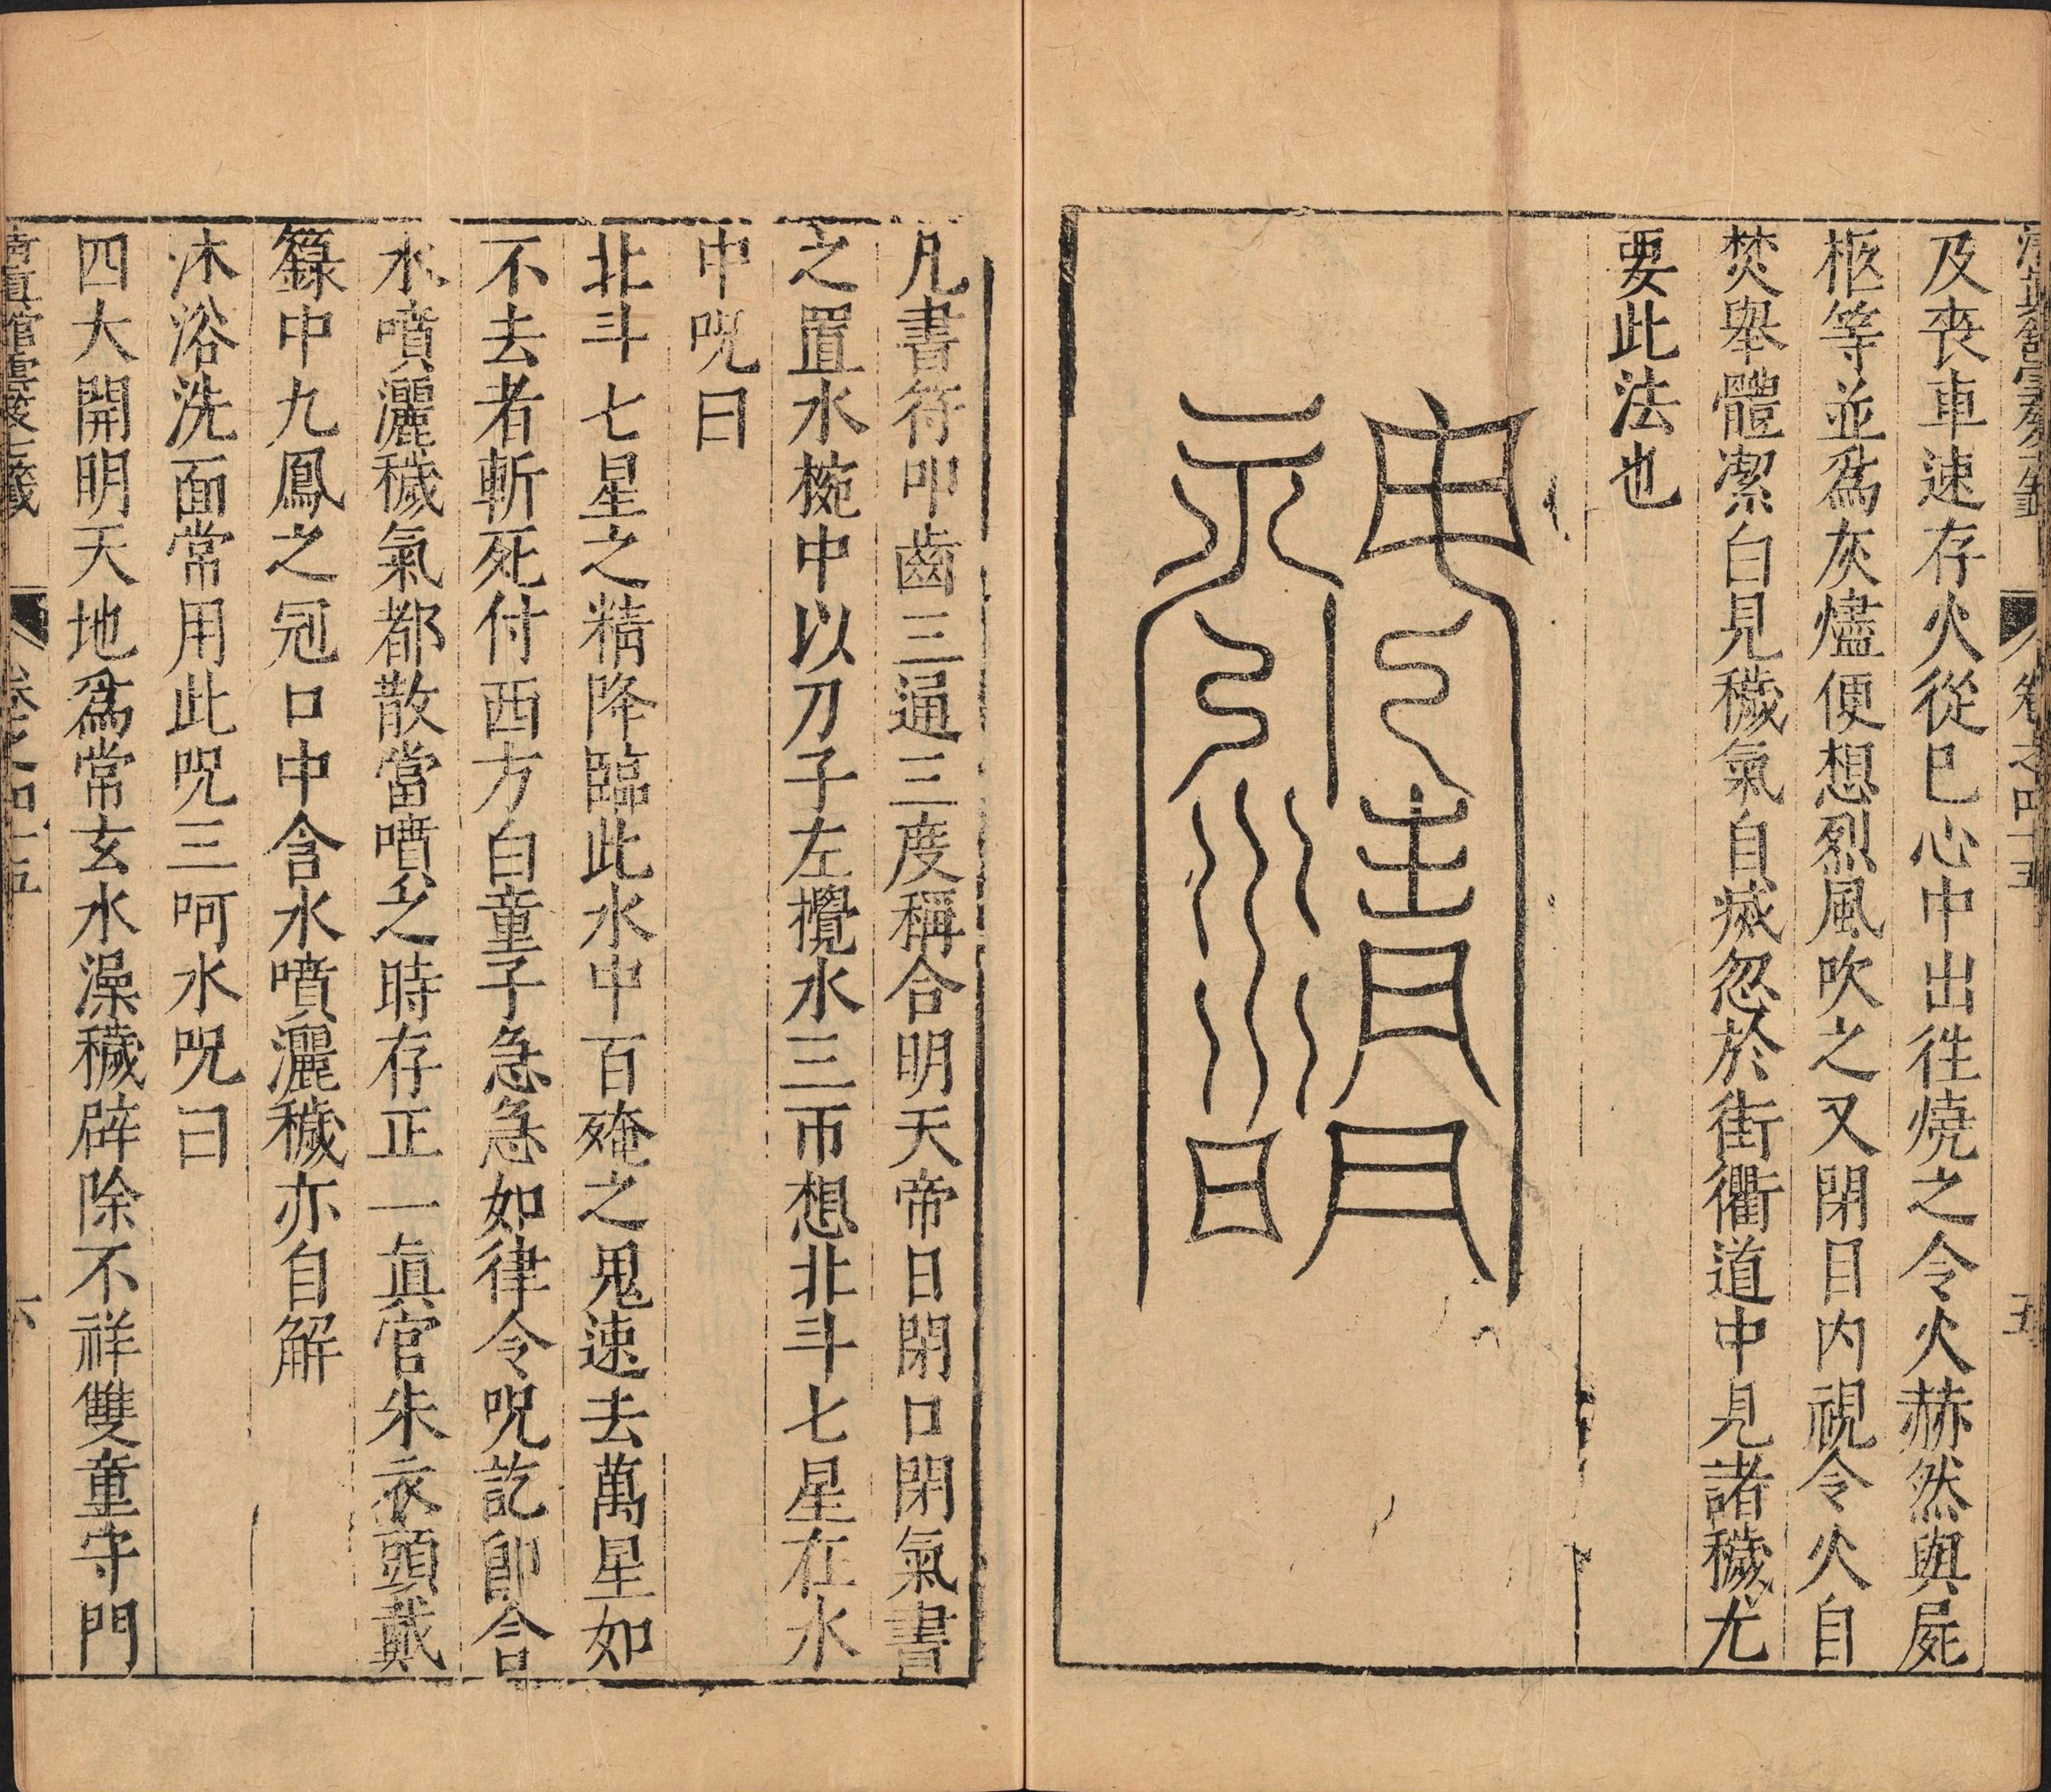 及丧車速存火從巳心中出徃燒之令火赫然與屍
柩等並爲灰燼便想烈風吹之又閉目内視令火自
焚舉體潔白見穢氣自滅忽於街衢道中見諸穢尤
要此法也
凡書符叩齒三通三度稱合明天帝日閉口閉氣書
之置水椀中以刀子左攪水三帀想北斗七星在水
中呪曰
北斗七星之精降臨此水中百殗之鬼速去萬里如
不去者斬死付西方白童子急急如律令呪訖卽含
水噴灑穢氣都散當噴之時存正一眞官朱衣頭戴
籙中九鳳之冠口中含水噴灑穢亦自解
沐浴洗面常用此呪三呵水呪曰
四大開明天地爲常玄水澡穢辟除不祥雙童守門
清眞舘雲笈七籤 卷之四十五 六